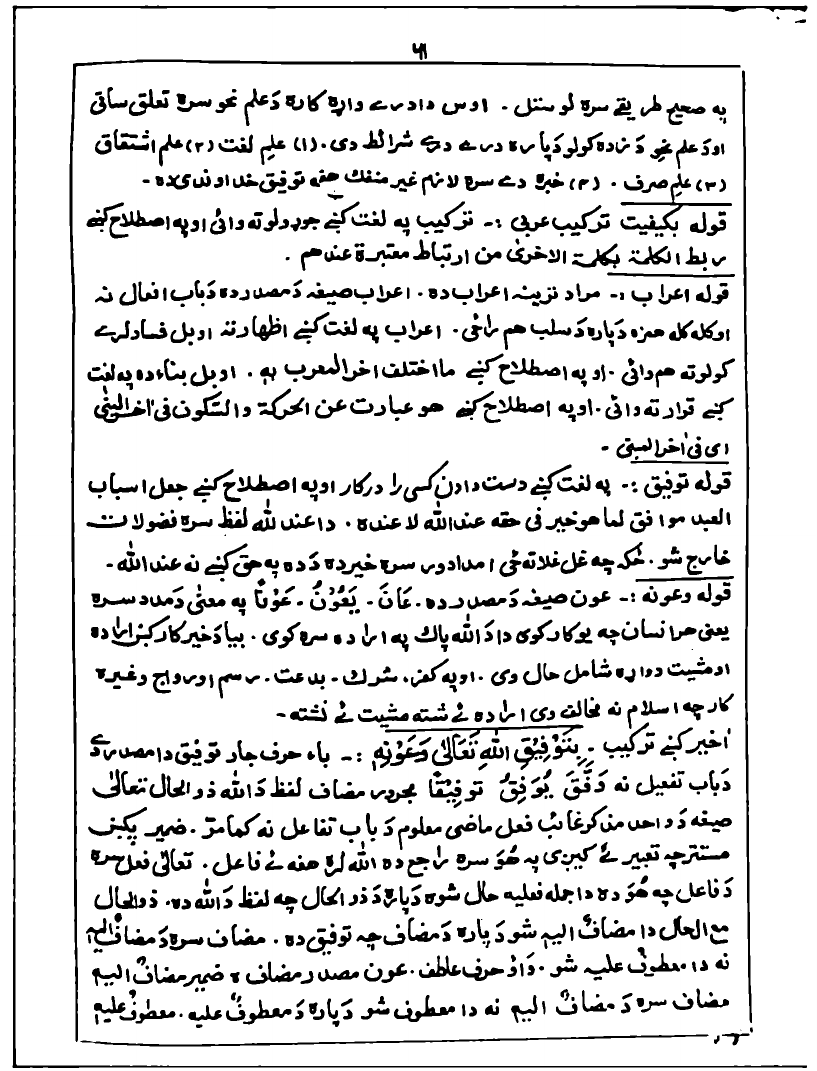 ۵۱
په صحیح طریقے سره لوستل ۔ اوس دا درے واړه کاره دَ علم نحو سره تعلق ساتی
او دَ علم نحو دَ زده کولو دَ پاره درے دی شرائط دی ۔ (۱) علمِ لغت (۲) علم اشتقاق
(۳) علمِ صرف ۔ (۴) خبره دے سره لازم غیر منفك هغه توفیق خداوندی ده ۔
قوله بکیفیت ترکیب عربی :۔ ترکیب په لغت کښے جوړولو ته وائی او په اصطلاح کښے
ربط الکلمة بکلمة الاخریٰ من ارتباط معتبرة عندهم ۔
قوله اعراب :۔ مراد ترینه اعراب ده ۔ اعراب صیغه دَ مصدر ده دَ باب افعال نه
او کله کله همزه دَ پاره دَ سلب هم راځی ۔ اعراب په لغت کښے اظهار ته او بل فساد لرے
کولو ته هم وائی ۔ او په اصطلاح کښے ما اختلف اخر المعرب به ۔ او بل بناء ده په لغت
کښے قرار ته وائی ۔ او په اصطلاح کښے هو عبارت عن الحرکة والسّکون فی اٰخر المبنی
ای فی اٰخر المبنی ۔
قوله توفیق :۔ په لغت کښے دست دادن کسی را در کار او په اصطلاح کښے جعل اسباب
العبد موافق لما هو خیر فی حقه عند الله لا عنده ۔ دا عند لله لفظ سره فضولات
خارج شو ۔ ځکه چه غل غلا ته ځی امداد ورسره خیر ده دَ ده په حق کښے نه عند الله ۔
قوله وعونه :۔ عون صیغه دَ مصدر ده ۔ عَانَ ۔ یَعُوْنُ ۔ عَوْنًا په معنٰی دَ مدد سره
یعنی هر انسان چه یو کار کوی دا دَ الله پاك په اراده سره کوی ۔ بیا دَ خیر کار کښ اراده
او مشیت دواړه شامل حال وی ۔ او په کفر، شرك ۔ بدعت ۔ رسم او رواج وغیره
کار چه اسلام نه مخالف وی اراده ئے شته مشیت ئے نشته ۔
اٰخیر کښے ترکیب ۔ بِتَوْفِیْقِ اللهِ تَعَالٰی وَعَوْنِهٖ :۔ باء حرف جار توفیق دا مصدر دے
دَ باب تفعیل نه وَفَّقَ یُوَفِّقُ توفِیْقًا مجرور مضاف لفظ دَ الله ذوالحال تعالٰی
صیغه دَ واحد مذکر غائب فعل ماضی معلوم دَ باب تفاعل نه کما مرّ ۔ ضمیر پکښ
مستتر چه تعبیر ئے کیږی په هُوَ سره راجع ده الله لره هغه ئے فاعل ۔ تعالٰی فعل سره
دَ فاعل چه هُوَ ده دا جمله فعلیه حال شوه دَ پاره دَ ذوالحال چه لفظ دَ الله ده ۔ ذوالحال
مع الحال دا مضافٌ الیه شو دَ پاره دَ مضاف چه توفیق ده ۔ مضاف سره دَ مضافٌ الیه
نه دا معطوفٌ علیه شو ۔ واؤ حرف عاطف ۔ عون مصدر مضاف ه ضمیر مضافٌ الیه
مضاف سره دَ مضافٌ الیه نه دا معطوف شو دَ پاره دَ معطوفٌ علیه ۔ معطوفٌ علیه